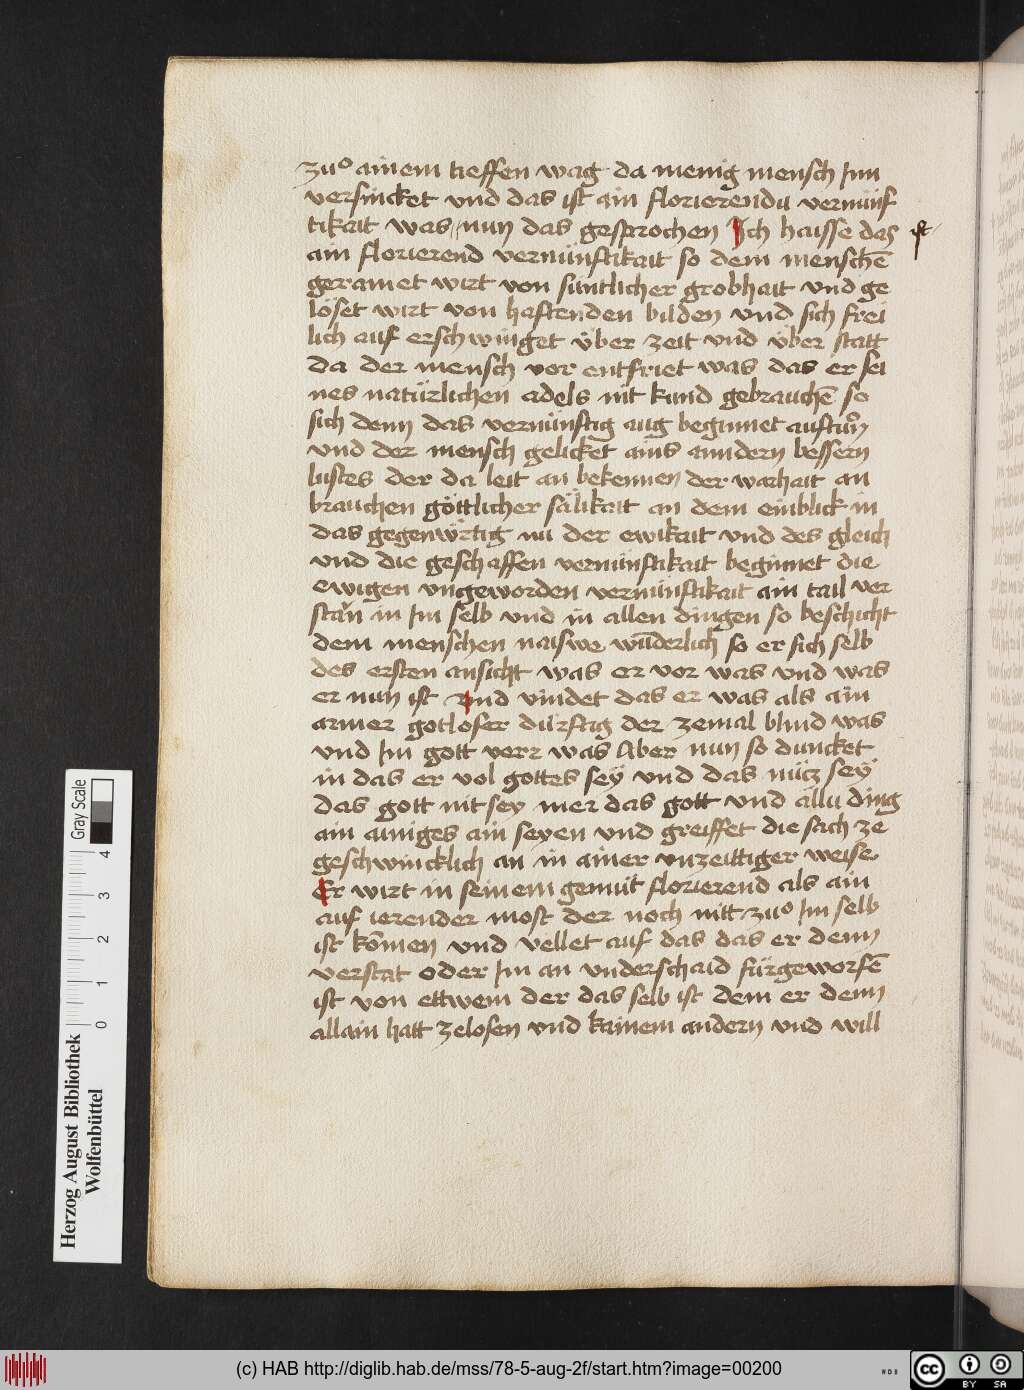 zuͦ ainem tieffen wag da menig mensch jnn
versincket vnd das ist ain florierendu vernünf
tikait was nun das gesprochen Ich haisse das ist
ain florierend vernünftikait so dem menschē
geramet wirt von süntlicher grobhait vnd ge
löset wirt von haftenden bilden vnd sich frei
lich auf erschwinget über zeit vnd über statt
da der mensch vor entfriet was das er sei
nes natürlichen adels nit kund gebrauchē so
sich denn das vernünftig aug beginnet auftuͦn
vnd der mensch gelicket ains anndern bessern
lustes der da leit an bekennen der warhait an
brauchen göttlicher sälikait an dem einblick in
das gegenwirtig nu der ewikait vnd des gleich
vnd die geschaffen vernünftikait beginnet die
ewigen vngeworden vernünftikait ain tail ver
stän in jm selb vnd in allen dingen so beschicht
dem menschen naiswe wūderlich so er sich selb
des ersten ansicht was er vor was vnd was
er nun ist Vnd vindet das er was als ain
armer gotloser dürftig der zemal blind was
vnd jm gott verr was Aber nun so duncket
in das er vol gottes seÿ vnd das nücz seÿ
das gott nit sey mer das gott vnd allu ding
ain ainiges ain seyen vnd greiffet die sach ze
geschwincklich an in ainer vnzeittiger weise
Er wirt in seinem gemüt florierend als ain
auf ierender most der noch nitt zuͦ jm selb
ist kōmen vnd vellet auf das das er denn
verstat oder jm an vnderschaid fürgeworfē
ist von ettwem der das selb ist dem er denn
allain hatt zelosen vnd kainem andern vnd will
Gray Scale
4
3
2
1
0
Herzog August Bibliothek
Wolfenbüttel
(c) HAB http://diglib.hab.de/mss/78-5-aug-2f/start.htm?image=00200
cc BY SA